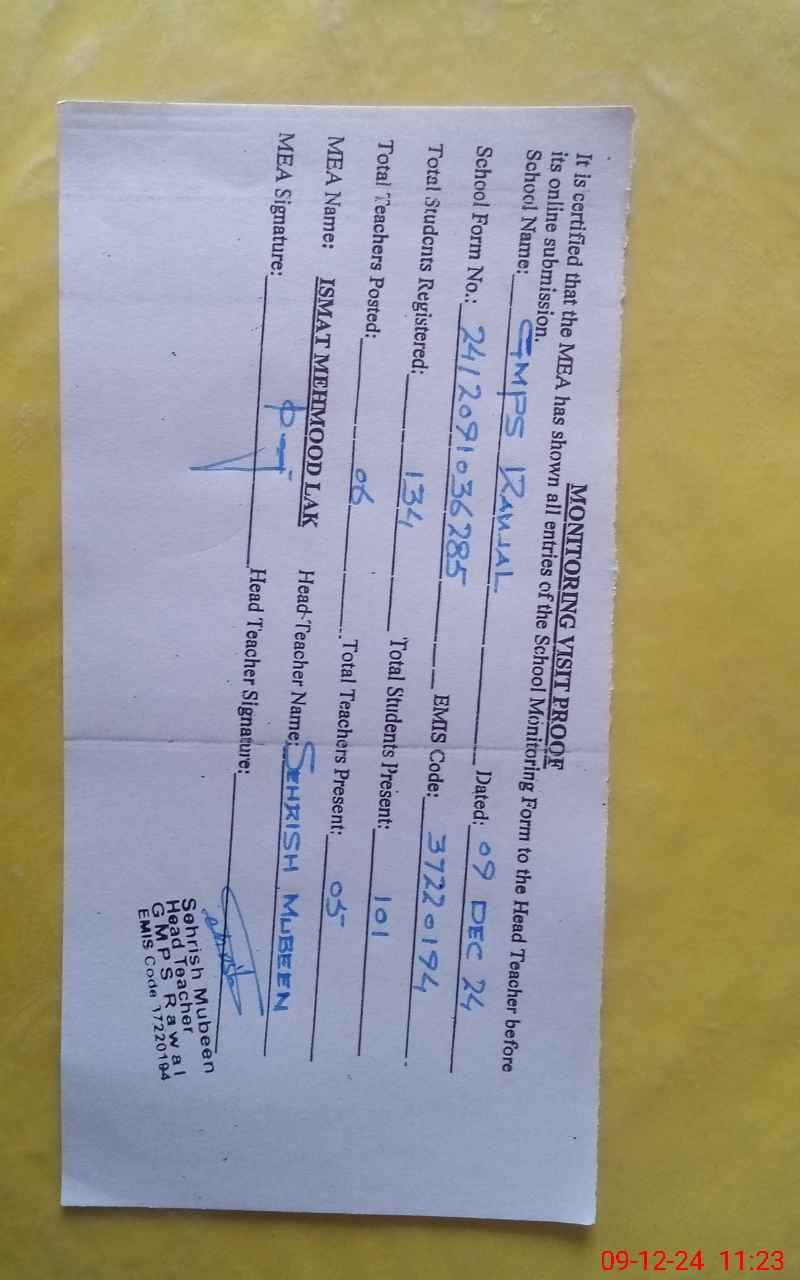 MONITORING VISIT PROOF
It is certified that the MEA has shown all entries of the School Monitoring Form to the Head Teacher before
its online submission.
School Name: GMPS RAWAL Dated: 09 DEC 24
School Form No.: 2412091036285 EMIS Code: 37220194
Total Students Registered: 134 Total Students Present: 101
Total Teachers Posted: 06 Total Teachers Present: 05
MEA Name: ISMAT MEHMOOD LAK Head Teacher Name: SEHRISH MUBEEN
MEA Signature: Head Teacher Signature:
Sehrish Mubeen
Head Teacher
GMPS Rawal
EMIS Code 37220194
09-12-24 11:23